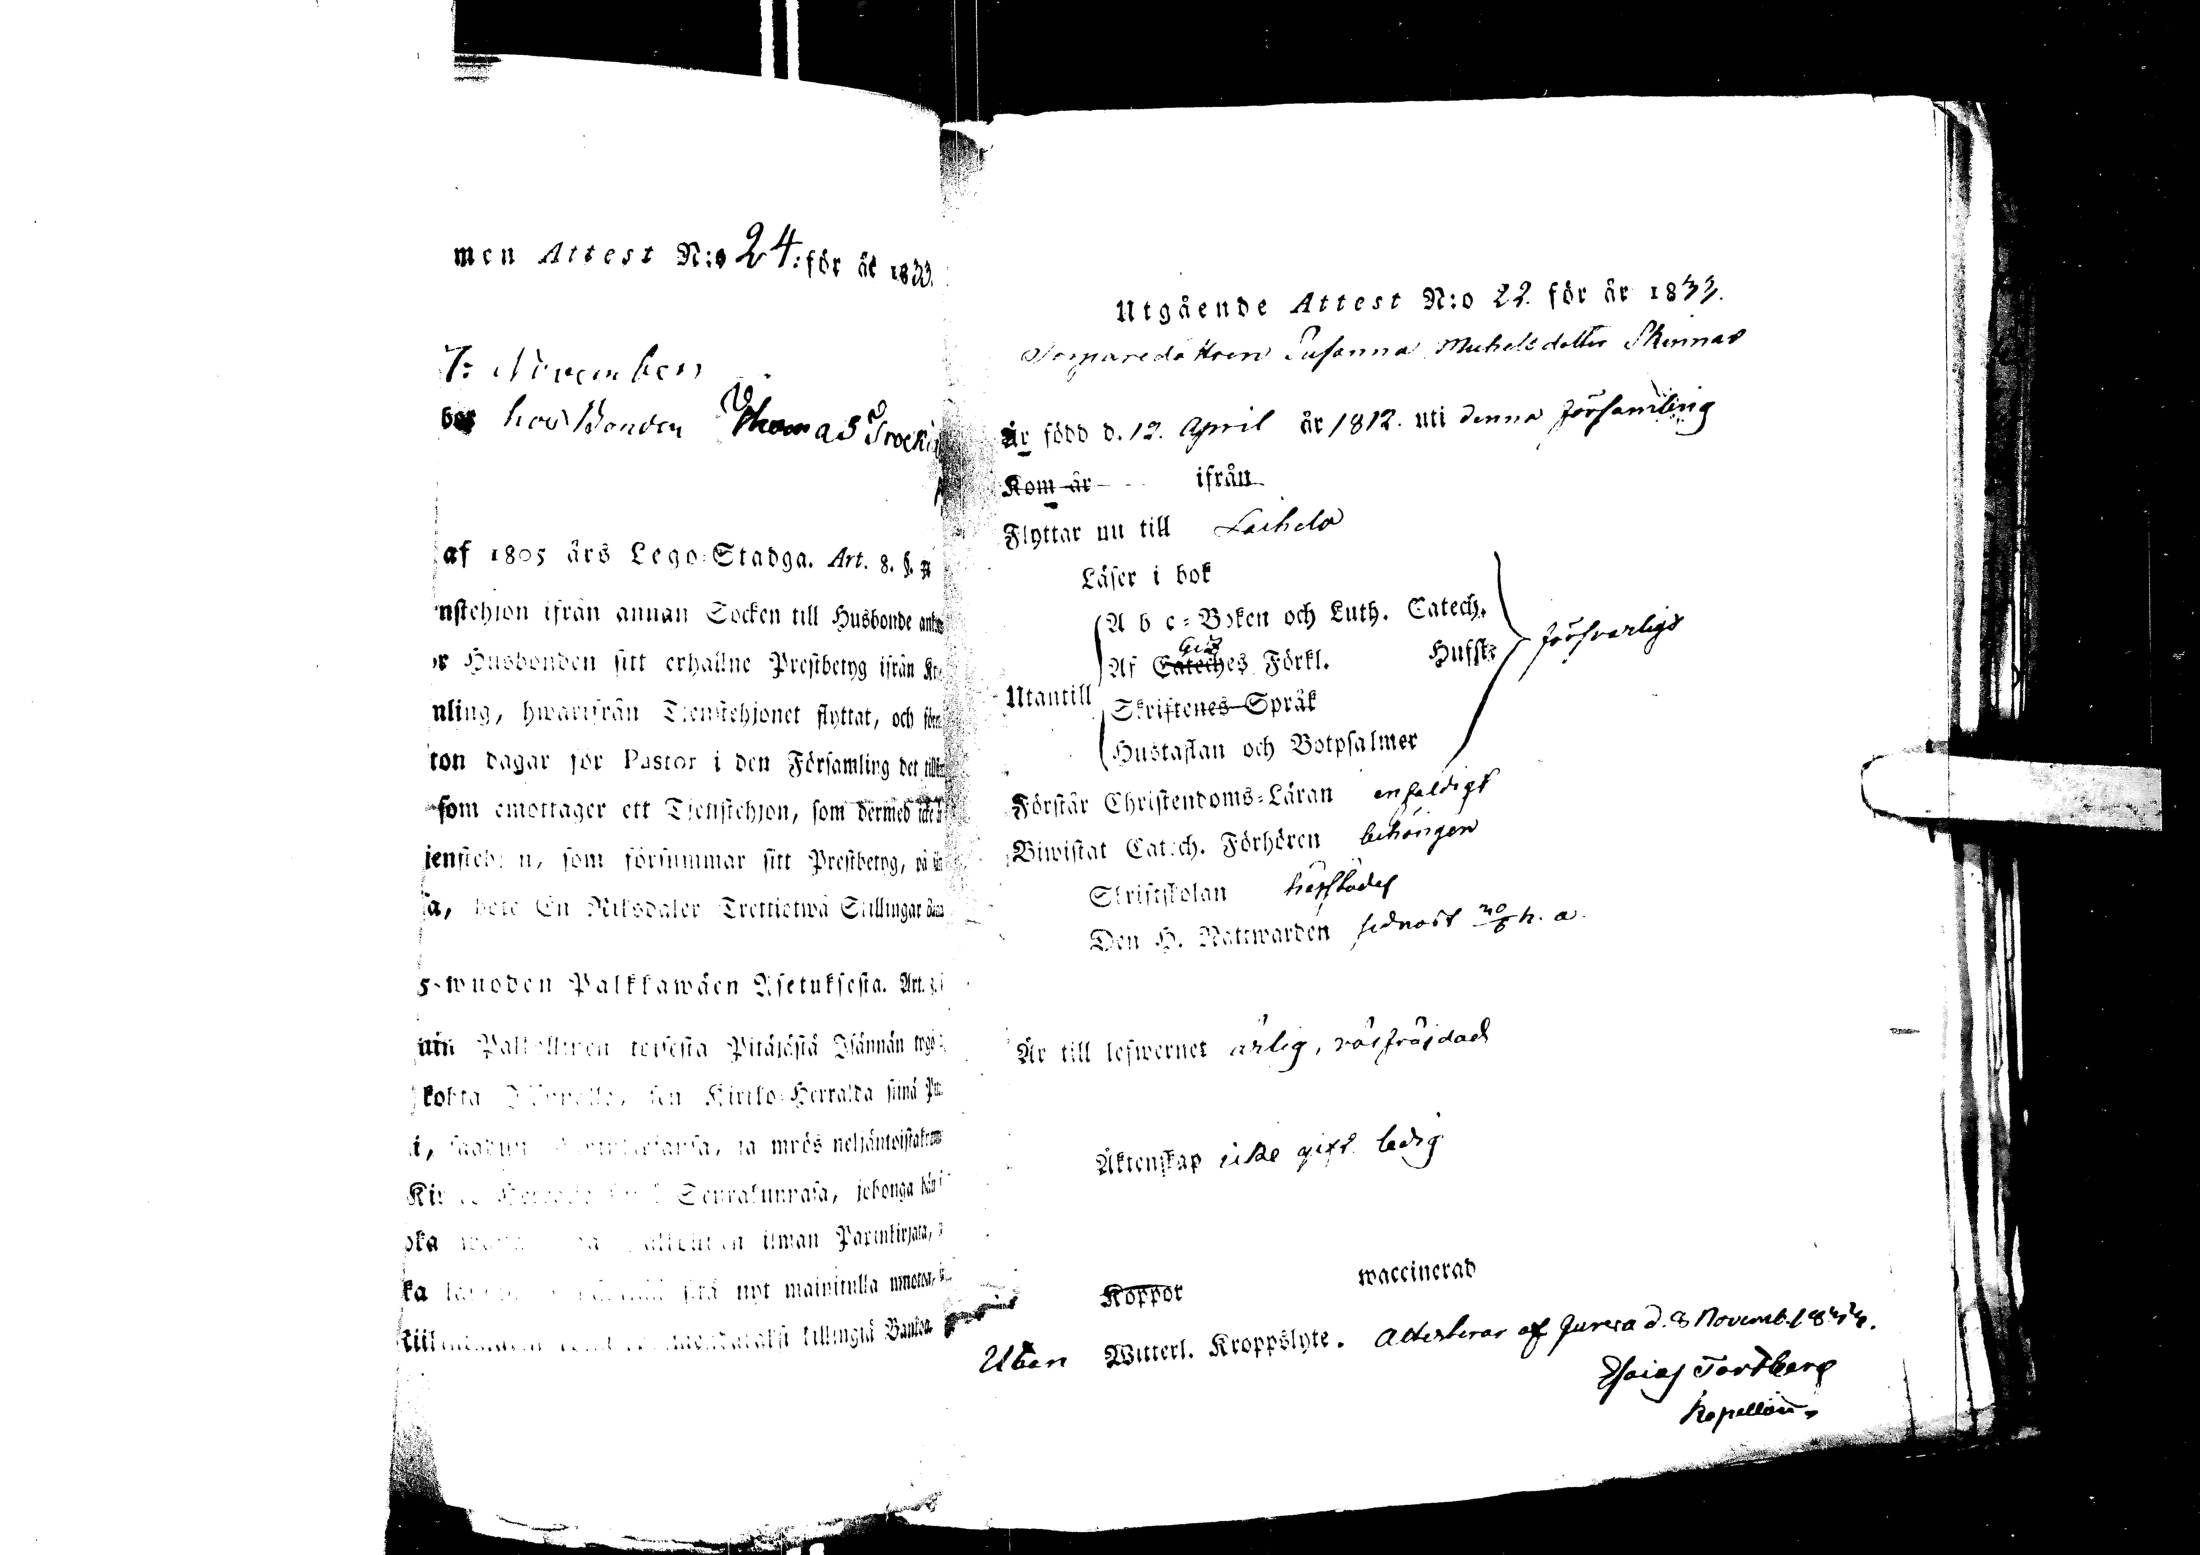 men Attest N:o 24. för år 1833.
7: November
bor hos Bonden Thomas
af 1805 års Lego-Stadga. Art. 8. §.
nstehjon ifrån annan Socken till Husbonde
Husbonden sitt erhållne Prestbetyg ifrån
nling, hwarifrån Tjenstehjonet flyttat, och
ton dagar för Pastor i den Församling det
som emottager ett Tjenstehjon, som dermed icke
jensteh n, som försummar sitt Prestbetyg, på
a, bote En Riksdaler Trettiotwå Skillingar
5-wuoden Palkkawäen Asetuksesta. Art.
uin Palkollinen toisesta Pitäjästä Isännän
kohta sen Kirkko-Herralda siinä
i, ja myös neljäntoistakym
Seurakunnasa, johonga hän
oka ilman Papinkirjata,
ka sitä nyt mainitulla
Riik killingiä Bankos
Utgående Attest N:o 22. för år 1833.
Susanna Michelsdotter Skinnar
Är född d. 12. April år 1812. uti denna församling
Kom år ifrån
Flyttar nu till Laihela
Läser i bok
A b c-Boken och Luth. Catech.
Af Cateches Förkl. Husst: försvarligt
Utantill
Skriftenes Språk
Hustaflan och Botpsalmer
Förstår Christendoms-Läran enfaldigt
Biwistat Catech. Förhören behörigen
Skriftskolan härstädes
Den H. Nattwarden sednast h. a.
Är till lefwernet ärlig, välfräjdad
Äktenskap icke gift ledig
Koppor waccinerad
Utan Witterl. Kroppslyte. Attesterar af Jurva d. 8 Novemb. 1833.
Esaias Tordberg
Kapellan